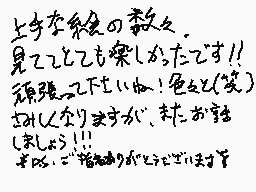 上手な絵の数々、
見ててとても楽しかったです!!
頑張って下さいね!色々と(笑)
さみしくなりますが、またお話
しましょう!!!
PS.ご指名ありがとうございます